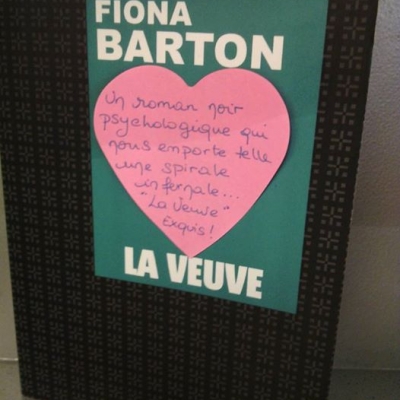 FIONA
BARTON
Un roman noir
psychologique qui
nous emporte telle
une spirale
infernale...
"La Veuve"
Exquis!
LA VEUVE